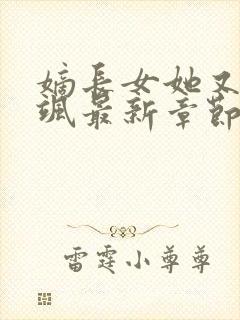 嫡长女她又
飒最新章节
雷霆小尊尊